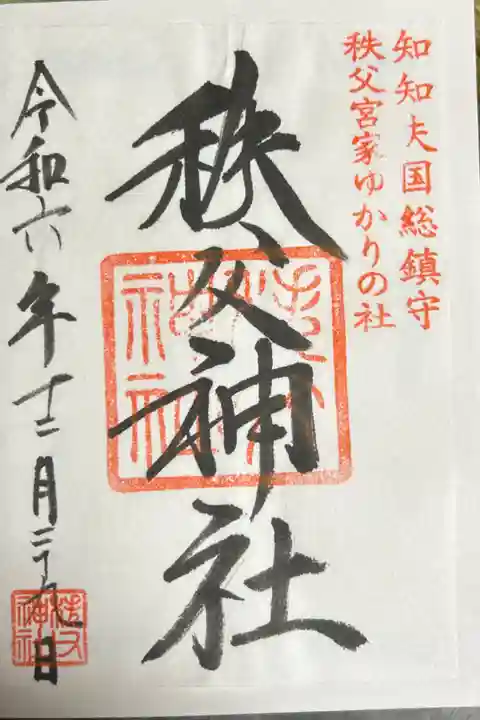 知知夫国総鎮守
秩父宮家ゆかりの社
秩父神社
令和六年十二月二十九日